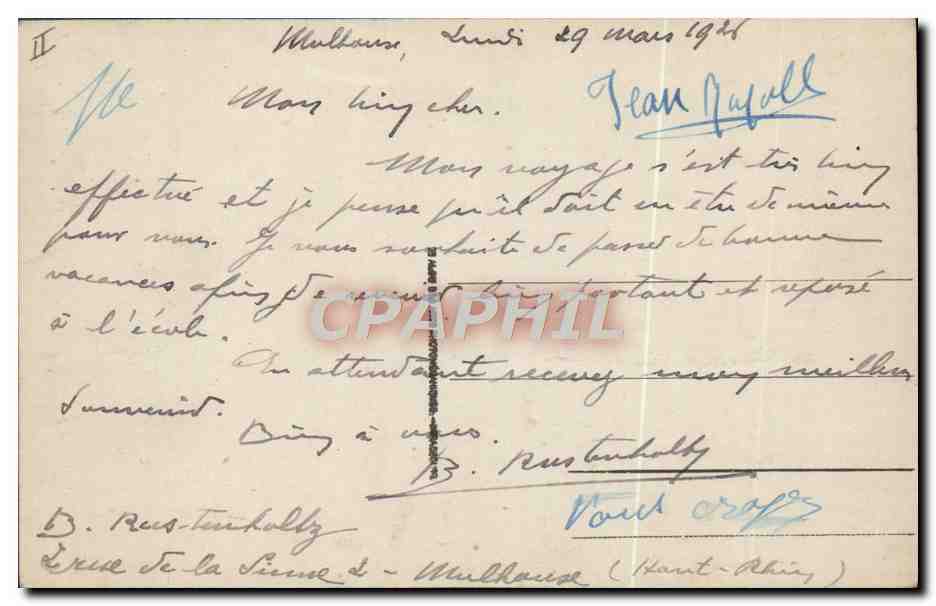 II
Mulhouse, Lundi 29 mars 1926
Mon bien cher.
Jean
Mon voyage s'est très bien
effectué et je pense qu'il doit en être de même
pour vous. Je vous souhaite de passer de bonne
vacances afin de revenir bien portant et reposé
à l'école.
CPAPHIL
En attendant recevez mon meilleur
souvenir.
Bien à vous.
B. Rustenholtz
B. Rustenholtz
2 rue de la Sinne 2 - Mulhouse (Haut-Rhin)